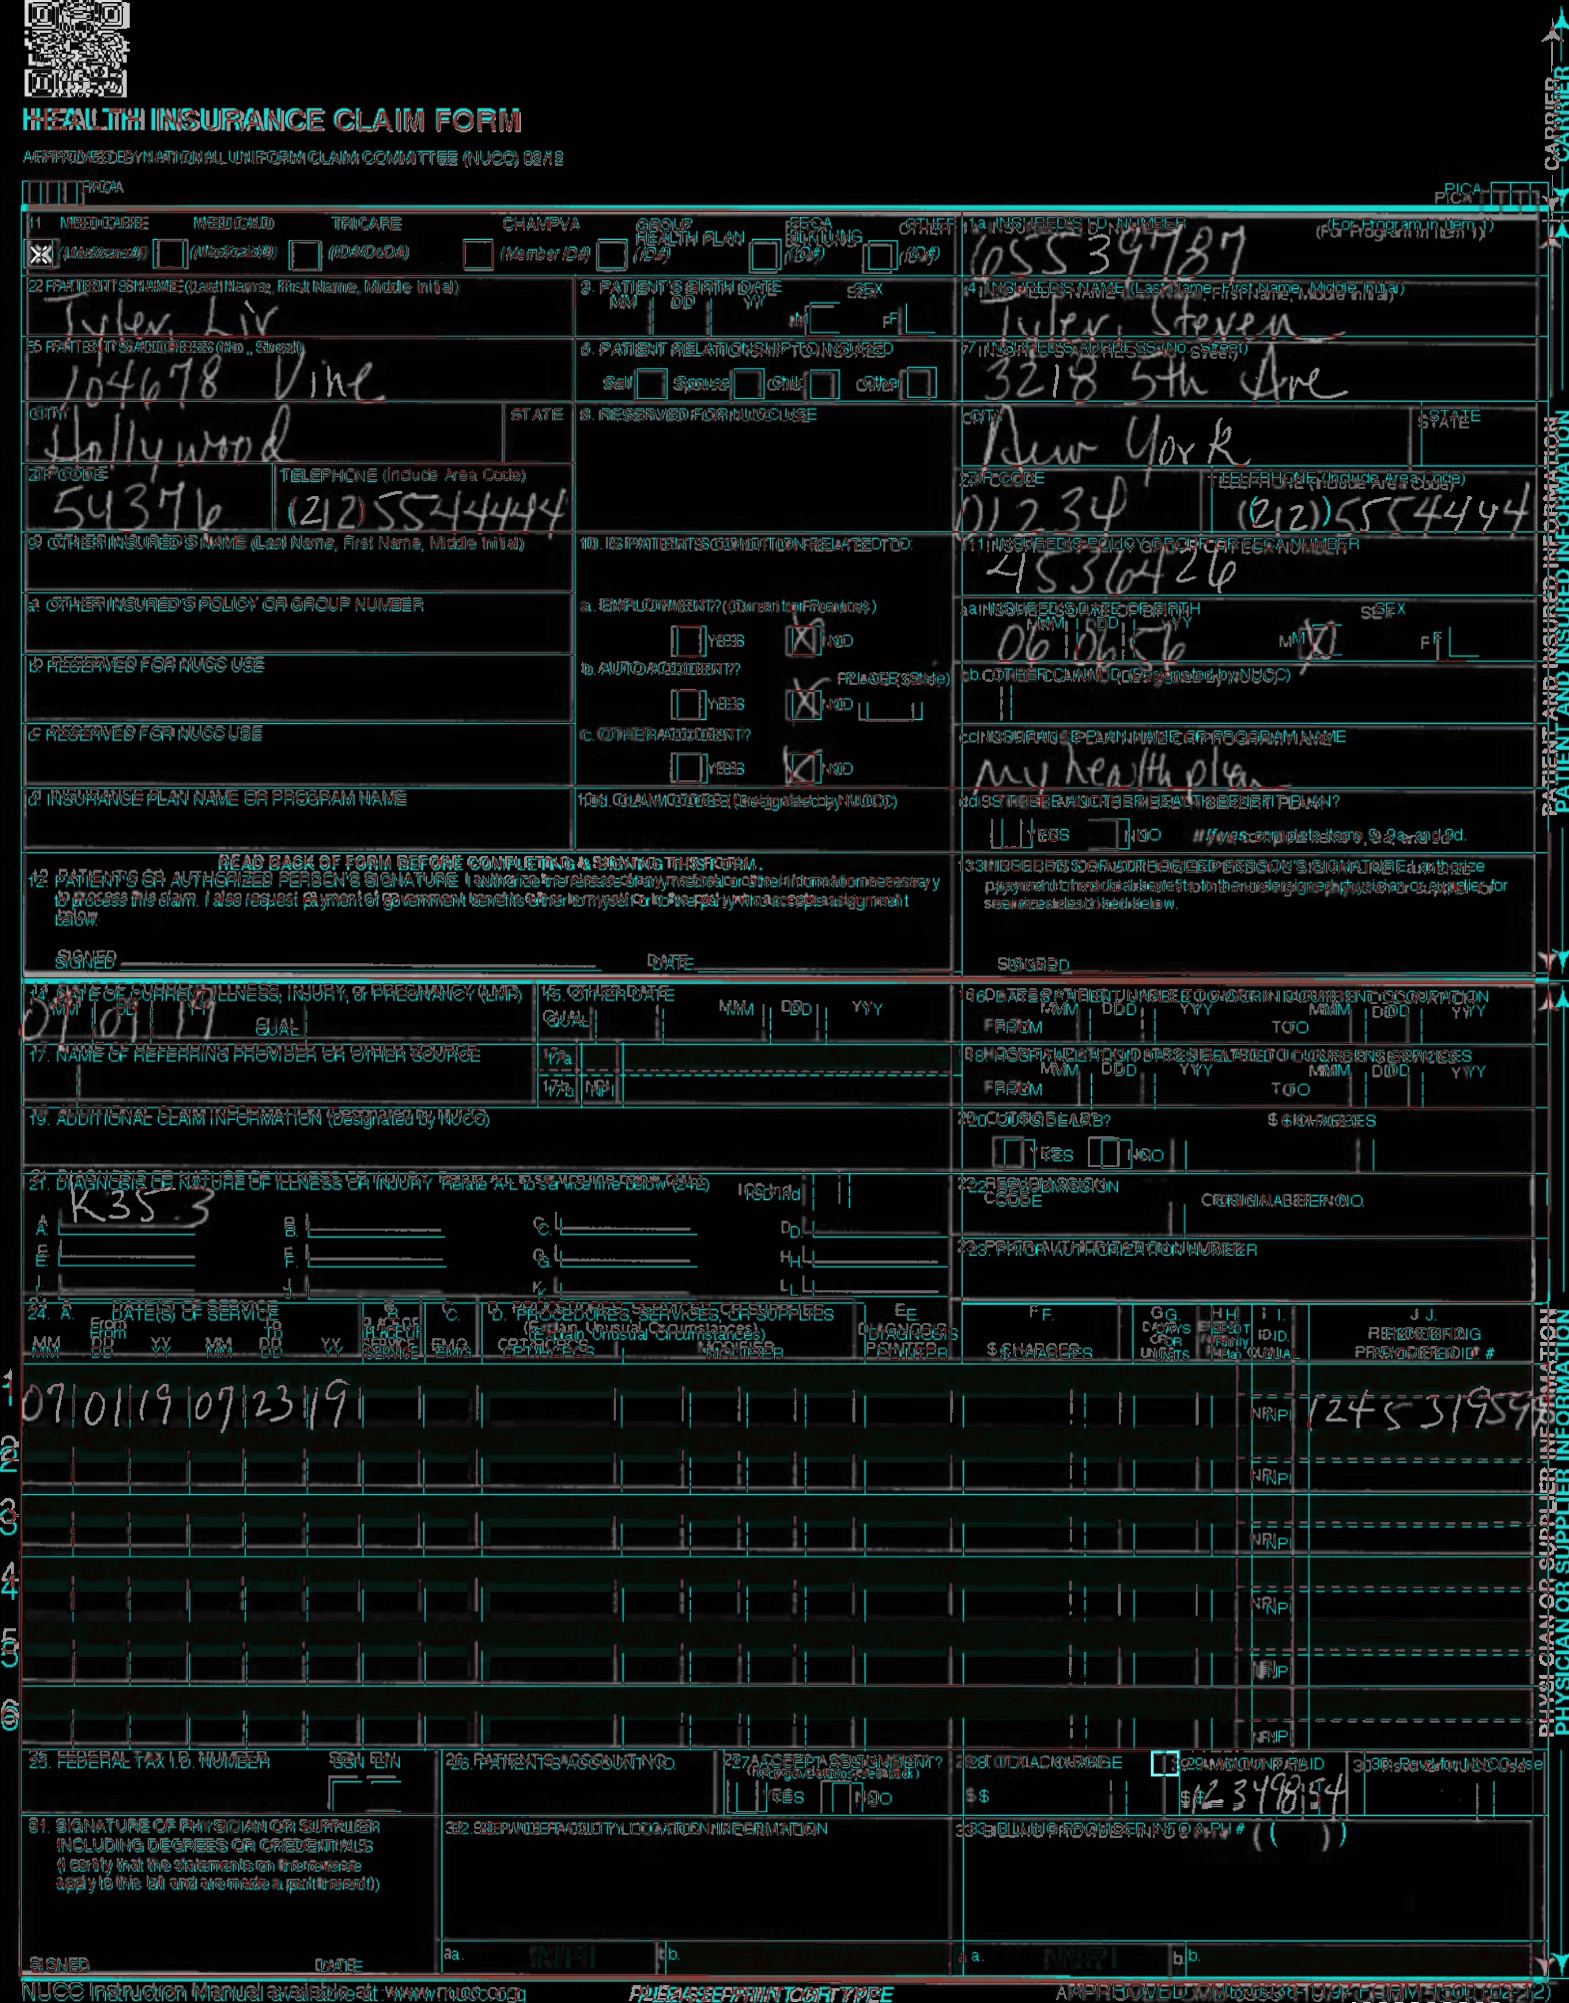 HEALTH INSURANCE CLAIM FORM
APPROVED BY NATIONAL UNIFORM CLAIM COMMITTEE (NUCC) 02/12
PICA PICA
CARRIER
1. MEDICARE MEDICAID TRICARE CHAMPVA GROUP HEALTH PLAN FECA BLK LUNG OTHER
(Medicare#) (Medicaid#) (ID#/DoD#) (Member ID#) (ID#) (ID#) (ID#)
1a. INSURED'S I.D. NUMBER (For Program in Item 1)
65539787
2. PATIENT'S NAME (Last Name, First Name, Middle Initial)
Tyler, Liv
3. PATIENT'S BIRTH DATE SEX
MM DD YY M F
4. INSURED'S NAME (Last Name, First Name, Middle Initial)
Tyler, Steven
5. PATIENT'S ADDRESS (No., Street)
104678 Vine
6. PATIENT RELATIONSHIP TO INSURED
Self Spouse Child Other
7. INSURED'S ADDRESS (No., Street)
3218 5th Ave
CITY STATE
Hollywood
8. RESERVED FOR NUCC USE
CITY STATE
New York
ZIP CODE TELEPHONE (Include Area Code)
54376 (212) 5544444
ZIP CODE TELEPHONE (Include Area Code)
01234 (212) 5554444
9. OTHER INSURED'S NAME (Last Name, First Name, Middle Initial)
10. IS PATIENT'S CONDITION RELATED TO:
11. INSURED'S POLICY GROUP OR FECA NUMBER
4536426
a. OTHER INSURED'S POLICY OR GROUP NUMBER
a. EMPLOYMENT? (Current or Previous)
YES NO
a. INSURED'S DATE OF BIRTH SEX
MM DD YY
06 06 56 M F
b. RESERVED FOR NUCC USE
b. AUTO ACCIDENT? PLACE (State)
YES NO
b. OTHER CLAIM ID (Designated by NUCC)
c. RESERVED FOR NUCC USE
c. OTHER ACCIDENT?
YES NO
c. INSURANCE PLAN NAME OR PROGRAM NAME
my health plan
d. INSURANCE PLAN NAME OR PROGRAM NAME
10d. CLAIM CODES (Designated by NUCC)
d. IS THERE ANOTHER HEALTH BENEFIT PLAN?
YES NO If yes, complete items 9, 9a, and 9d.
READ BACK OF FORM BEFORE COMPLETING & SIGNING THIS FORM.
12. PATIENT'S OR AUTHORIZED PERSON'S SIGNATURE I authorize the release of any medical or other information necessary
to process this claim. I also request payment of government benefits either to myself or to the party who accepts assignment
below.
SIGNED DATE
13. INSURED'S OR AUTHORIZED PERSON'S SIGNATURE I authorize
payment of medical benefits to the undersigned physician or supplier for
services described below.
SIGNED
PATIENT AND INSURED INFORMATION
14. DATE OF CURRENT ILLNESS, INJURY, or PREGNANCY (LMP)
MM DD YY
07 01 19 QUAL.
15. OTHER DATE
QUAL. MM DD YY
16. DATES PATIENT UNABLE TO WORK IN CURRENT OCCUPATION
MM DD YY MM DD YY
FROM TO
17. NAME OF REFERRING PROVIDER OR OTHER SOURCE
17a.
17b. NPI
18. HOSPITALIZATION DATES RELATED TO CURRENT SERVICES
MM DD YY MM DD YY
FROM TO
19. ADDITIONAL CLAIM INFORMATION (Designated by NUCC)
20. OUTSIDE LAB? $ CHARGES
YES NO
21. DIAGNOSIS OR NATURE OF ILLNESS OR INJURY Relate A-L to service line below (24E) ICD Ind.
A. K35.3 B. C. D.
E. F. G. H.
I. J. K. L.
22. RESUBMISSION CODE ORIGINAL REF. NO.
23. PRIOR AUTHORIZATION NUMBER
24. A. DATE(S) OF SERVICE B. C. D. PROCEDURES, SERVICES, OR SUPPLIES E. F. G. H. I. J.
From To PLACE OF SERVICE EMG (Explain Unusual Circumstances) DIAGNOSIS POINTER $ CHARGES DAYS OR UNITS EPSDT Family Plan ID. QUAL. RENDERING PROVIDER ID. #
MM DD YY MM DD YY CPT/HCPCS MODIFIER
1 07 01 19 07 23 19 NPI 124531959
2 NPI
3 NPI
4 NPI
5 NPI
6 NPI
25. FEDERAL TAX I.D. NUMBER SSN EIN
26. PATIENT'S ACCOUNT NO.
27. ACCEPT ASSIGNMENT?
YES NO
28. TOTAL CHARGE
$
29. AMOUNT PAID
$ 123498 54
30. Rsvd for NUCC Use
31. SIGNATURE OF PHYSICIAN OR SUPPLIER
INCLUDING DEGREES OR CREDENTIALS
(I certify that the statements on the reverse
apply to this bill and are made a part thereof.)
SIGNED DATE
32. SERVICE FACILITY LOCATION INFORMATION
a. NPI b.
33. BILLING PROVIDER INFO & PH # ( )
a. NPI b.
PHYSICIAN OR SUPPLIER INFORMATION
NUCC Instruction Manual available at: www.nucc.org
PLEASE PRINT OR TYPE